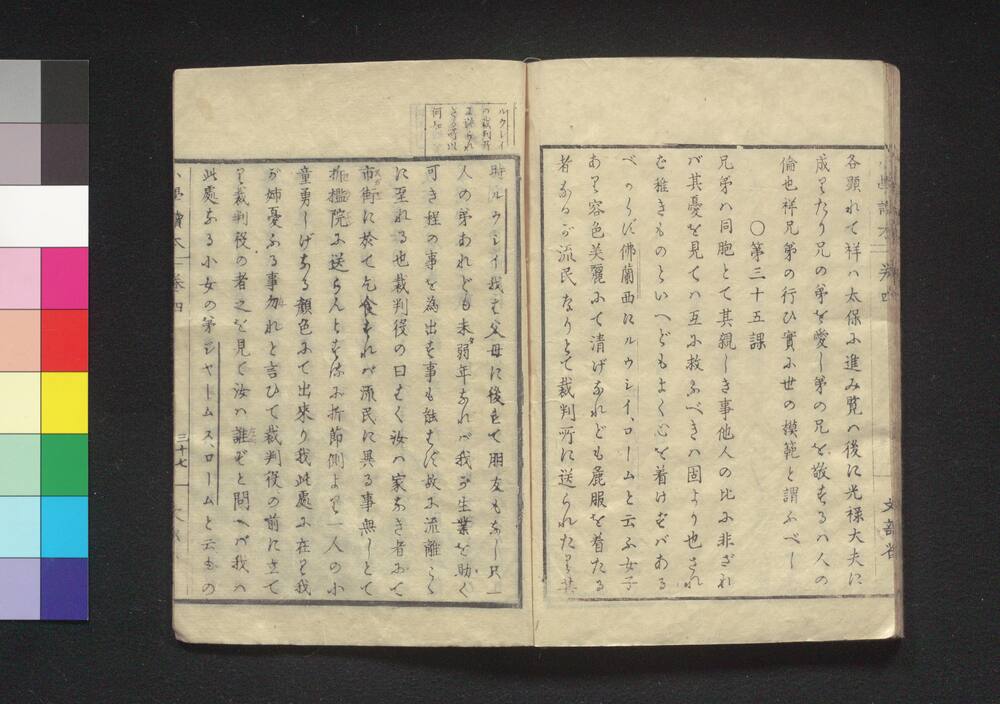 各顕れて祥ハ太保に進み覧ハ後に光禄大夫に
成りたり兄の弟を愛し弟の兄を敬する八人の
倫也祥兄弟の行ひ實に世の模範と謂ふべし
〇第三十五課
兄弟ハ同胞とて其親しき事他人の比に非ざれ
バ其憂を見てハ互に救ふべきハ固より也され
ど稚きものといへどもよく心を着けずバある
べからず佛蘭西にルウシイ、ロームと云ふ女子
あり容色美麗にて清げなれども麁服を着たる
者なるが流民なりとて裁判所に送られたり其
文部省
ルウレイ
の裁判所
に送られ
たる時ハ
何如
時ルウシイ我ハ父母に後れて朋友もなし只一
人の弟あれども未弱年なれバ我が生業を助く
可き程の事を為出す事も能はず故に流離して
に至れる也裁判役の曰はく汝ハ家なき者にて
市街に於て乞食すれバ流民に異る事無しとて
折檻院に送らんとする折節側より一人の小
童勇しげなる顔色にて出來り我此處に在り我
が姉憂ふる事勿れと言ひて裁判役の前に立て
り裁判役の者之を見て汝ハ誰ぞと問へバ我ハ
此處なる小女の弟ジャームス、ロームと云もの
小學讀本
巻四
三十七